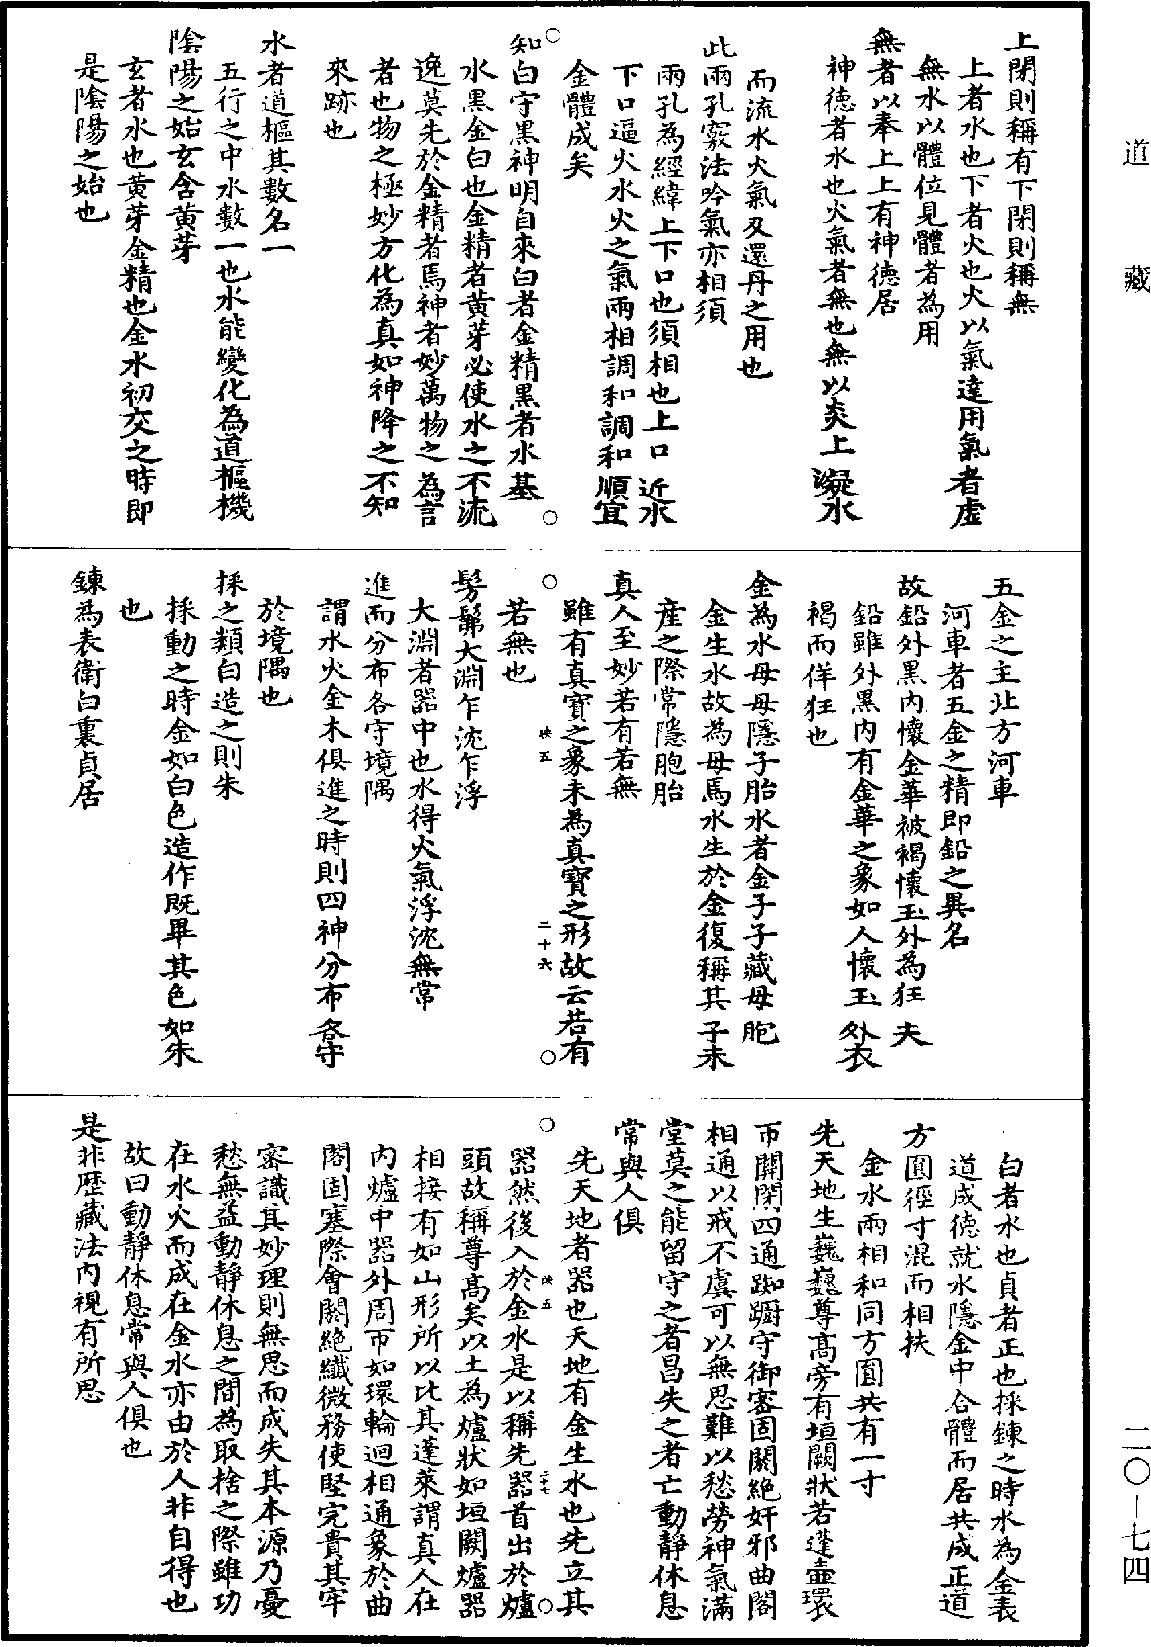 道藏
上閉則稱有下閉則稱無
上者水也下者火也火以氣達用氣者虛
無水以體位見體者為用
無者以奉上上有神德居
神德者水也火氣者無也無以炎上凝水
而流水火氣及還丹之用也
此兩孔竅法吟氣亦相須
兩孔為經緯上下口也須相也上口近水
下口逼火水火之氣兩相調和調和順宜
金體成矣
知白守黑神明自來白者金精黑者水基
水黑金白也金精者黃芽必使水之不流
逸莫先於金精者焉神者妙萬物之為言
者也物之極妙方化為真如神降之不知
來跡也
水者道樞其數名一
五行之中水數一也水能變化為道樞機
陰陽之始玄含黃芽
玄者水也黃芽金精也金水初交之時即
是陰陽之始也
五金之主北方河車
河車者五金之精即鉛之異名
故鉛外黑內懷金華被褐懷玉外為狂夫
鉛雖外黑內有金華之象如人懷玉外衣
褐而佯狂也
金為水母母隱子胎水者金子子藏母胞
金生水故為母焉水生於金復稱其子未
產之際常隱胞胎
真人至妙若有若無
雖有真寶之象未為真寶之形故云若有
映五 二十六
若無也
髣髴大淵乍沈乍浮
大淵者器中也水得火氣浮沈無常
進而分布各守境隅
謂水火金木俱進之時則四神分布各守
於境隅也
採之類白造之則朱
採動之時金如白色造作既畢其色如朱
也
鍊為表衛白裏貞居
白者水也貞者正也採鍊之時水為金表
道成德就水隱金中合體而居共成正道
方圓徑寸混而相扶
金水兩相和同方圓共有一寸
先天地生巍巍尊高旁有垣闕狀若蓬壺環
帀關閉四通踟躕守御審固闕絕奸邪曲閣
相通以戒不虞可以無思難以愁勞神氣滿
堂莫之能留守之者昌失之者亡動靜休息
常與人俱
先天地者器也天地有金生水也先立其
映五 二十七
器然後入於金水是以稱先器首出於爐
頭故稱尊高矣以土為爐狀如垣闕爐器
相接有如山形所以比其蓬萊謂真人在
內爐中器外周帀如環輪迴相通象於曲
閣固塞際會闕絕纖微務使堅完貴其牢
審識其妙理則無思而成失其本源乃憂
愁無益動靜休息之間為取捨之際雖功
在水火而成在金水亦由於人非自得也
故曰動靜休息常與人俱也
是非歷藏法內視有所思
二〇—七四